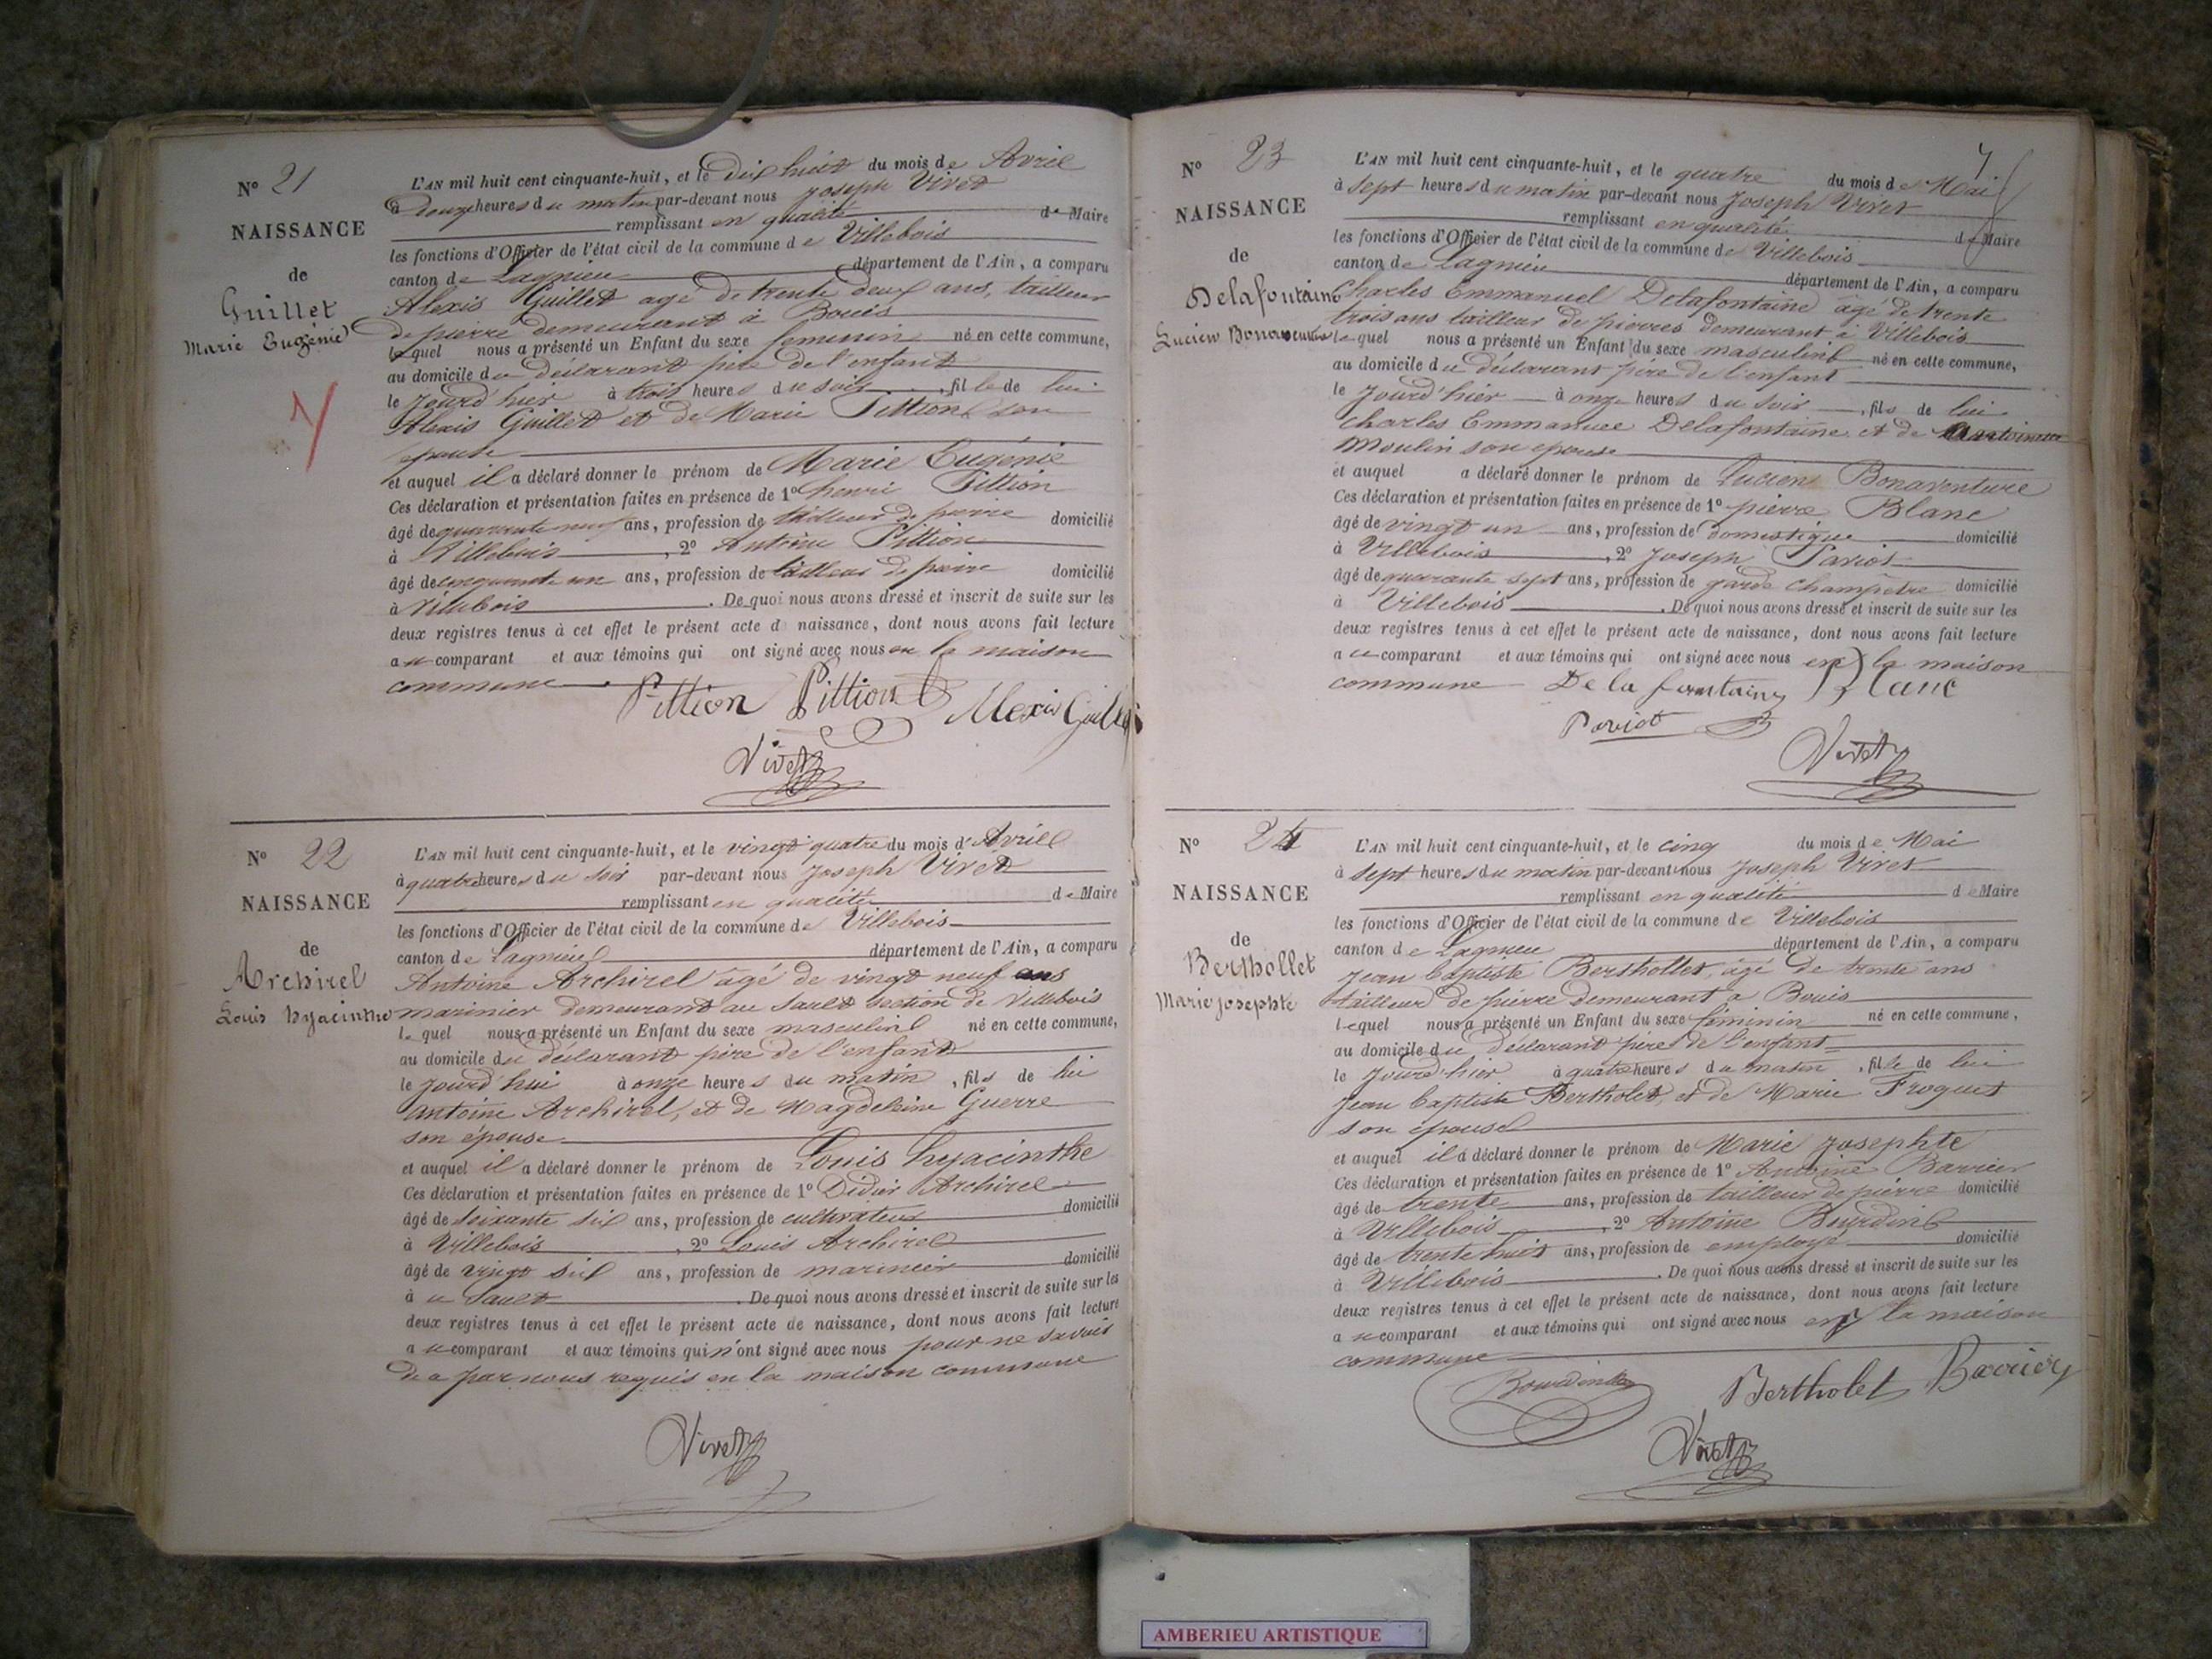 N° 21
NAISSANCE
de
Guillet
Marie Eugénie
L'AN mil huit cent cinquante-huit, et le dix huit du mois de Avril
à douze heures du matin par-devant nous Joseph Vivet
remplissant en qualité de Maire
les fonctions d'Officier de l'état civil de la commune de Villebois
canton de Lagnieu département de l'Ain, a comparu
Alexis Guillet agé de trente deux ans, tailleur
de pierre demeurant à Bouis
lequel nous a présenté un Enfant du sexe feminin né en cette commune,
au domicile du déclarant père de l'enfant
le jourd'hier à trois heures du soir, fille de lui
Alexis Guillet et de Marie Pittion son
épouse
et auquel il a déclaré donner le prénom de Marie Eugénie
Ces déclaration et présentation faites en présence de 1° henri Pittion
âgé de quarante neuf ans, profession de tailleur de pierre domicilié
à Villebois, 2° Pittion
âgé de cinquante un ans, profession de tailleur de pierre domicilié
à Villebois. De quoi nous avons dressé et inscrit de suite sur les
deux registres tenus à cet effet le présent acte de naissance, dont nous avons fait lecture
au comparant et aux témoins qui ont signé avec nous en la maison
commune
Pittion Pittion Alexis Guillet
Vivet
N° 22
NAISSANCE
de
Archirel
Louis hyacinthe
L'AN mil huit cent cinquante-huit, et le vingt quatre du mois d'Avril
à quatre heures du soir par-devant nous Joseph Vivet
remplissant en qualité de Maire
les fonctions d'Officier de l'état civil de la commune de Villebois
canton de Lagnieu département de l'Ain, a comparu
Antoine Archirel âgé de vingt neuf ans
marinier demeurant au Sault section de Villebois
lequel nous a présenté un Enfant du sexe masculin né en cette commune,
au domicile du déclarant père de l'enfant
le jourd'hui à onze heures du matin, fils de lui
antoine Archirel, et de Magdeleine Guerre
son épouse
et auquel il a déclaré donner le prénom de Louis hyacinthe
Ces déclaration et présentation faites en présence de 1° Didier Archirel
âgé de soixante six ans, profession de cultivateur domicilié
à Villebois, 2° Louis Archirel
âgé de vingt six ans, profession de marinier domicilié
à u Sault. De quoi nous avons dressé et inscrit de suite sur les
deux registres tenus à cet effet le présent acte de naissance, dont nous avons fait lecture
au comparant et aux témoins qui n'ont signé avec nous pour ne savoir
de a par nous requis en la maison commune
Vivet
7
N° 23
NAISSANCE
de
Delafontaine
Lucien Bonaventure
L'AN mil huit cent cinquante-huit, et le quatre du mois de Mai
à sept heures du matin par-devant nous Joseph Vivet
remplissant en qualité de Maire
les fonctions d'Officier de l'état civil de la commune de Villebois
canton de Lagnieu département de l'Ain, a comparu
Charles Emmanuel Delafontaine âgé de trente
trois ans tailleur de pierres demeurant à Villebois
lequel nous a présenté un Enfant du sexe masculin né en cette commune,
au domicile du déclarant père de l'enfant
le jourd'hier à onze heures du soir, fils de lui
Charles Emmanuel Delafontaine et de Antoinette
Moulin son epouse
et auquel a déclaré donner le prénom de Lucien Bonaventure
Ces déclaration et présentation faites en présence de 1° pierre Blanc
âgé de vingt un ans, profession de domestique domicilié
à Villebois, 2° Joseph Pariot
âgé de quarante sept ans, profession de garde champêtre domicilié
à Villebois. De quoi nous avons dressé et inscrit de suite sur les
deux registres tenus à cet effet le présent acte de naissance, dont nous avons fait lecture
au comparant et aux témoins qui ont signé avec nous en la maison
commune De la fontaine Blanc
Pariot
Vivet
N° 24
NAISSANCE
de
Berthollet
Marie josephte
L'AN mil huit cent cinquante-huit, et le cinq du mois de Mai
à sept heures du matin par-devant nous Joseph Vivet
remplissant en qualité de Maire
les fonctions d'Officier de l'état civil de la commune de Villebois
canton de Lagnieu département de l'Ain, a comparu
Jean baptiste Bersthollet, âgé de trente ans
tailleur de pierre demeurant a Bouis
lequel nous a présenté un Enfant du sexe féminin né en cette commune,
au domicile du déclarant père de l'enfant
le jourd'hier à quatre heures du matin, fille de lui
Jean baptiste Bertholet, et de Marie Froquet
son épouse
et auquel il a déclaré donner le prénom de Marie josephte
Ces déclaration et présentation faites en présence de 1° Antoine Barrier
âgé de trente ans, profession de tailleur de pierre domicilié
à Villebois, 2° Antoine Bourdin
âgé de trente huit ans, profession de employé domicilié
à Villebois. De quoi nous avons dressé et inscrit de suite sur les
deux registres tenus à cet effet le présent acte de naissance, dont nous avons fait lecture
au comparant et aux témoins qui ont signé avec nous en la maison
commune
Bourdin Bertholet Barrier
Vivet
AMBERIEU ARTISTIQUE